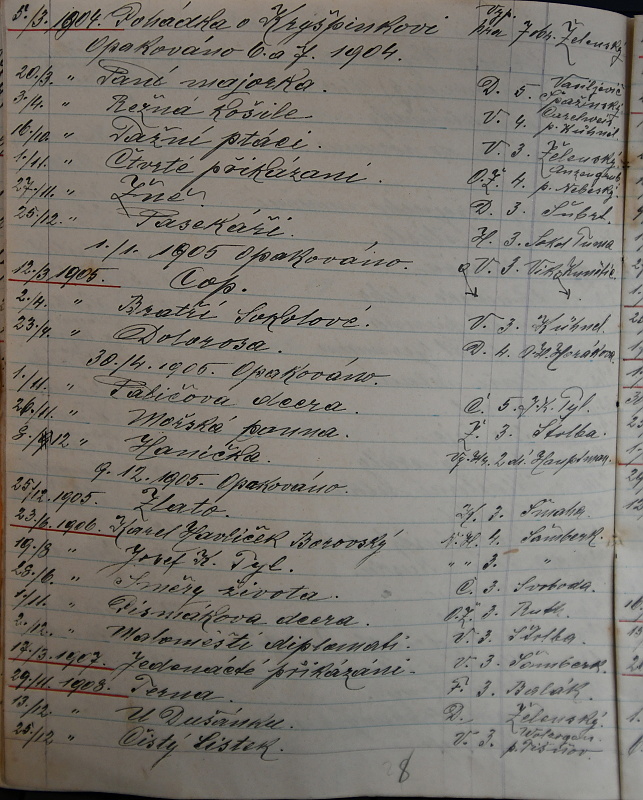 5./3. 1904. Pohádka o Kryšpínkovi Výp. hra 7 obr. Želenský
Opakováno 6. a 7. 1904.
20./3. " Paní majorka. D. 5. Vasiljevič Špažinský
3./4. " Režná košile V. 4. p. Kühnel
16./10. " Tažní ptáci. V. 3. Želenský
1./11. " Čtvrté přikázání. O.Ž. 4. Anzengrub p. Nebeský
27./11. " Žně. D. 3. Šubrt.
25./12. " Pasekáři. H. 3. Sokol Tůma
1./1. 1905 Opakováno.
12./3. 1905. Cop. V. 3. Vik. Kunětic.
2./4. " Bratří Sokolové. V. 3. Kühnel
23./4. " Dolorosa. D. 4. Horáková.
30./4. 1905. Opakováno.
1./11. " Paličova dcera. Č. 5. J. K. Tyl.
26./11. " Mořská panna. Ž. 3. Štolba.
3./12 " Hanička. Vý. Hr. 2 di. Hauptman.
9. 12. 1905. Opakováno.
25./12. 1905. Zlato. H. 3. Šmaha.
23./6. 1906. Karel Havlíček Borovský 4. Šamberk.
19./8 " Josef K. Tyl. " " 3. "
23./6. " Směry života. Č. 3. Svoboda.
1./11. " Pismákova dcera. O.Ž. 3. Ruth.
2./12. " Maloměští diplomati. V. 3. Štolba.
17./3. 1907. Jedenácté přikázání. V. 3. Šamberk.
29./11. 1908. Terna. F. 3. Balák.
13./12. " U Dušánku. D. Želenský
25./12 " Čistý lístek. V. 3.
8